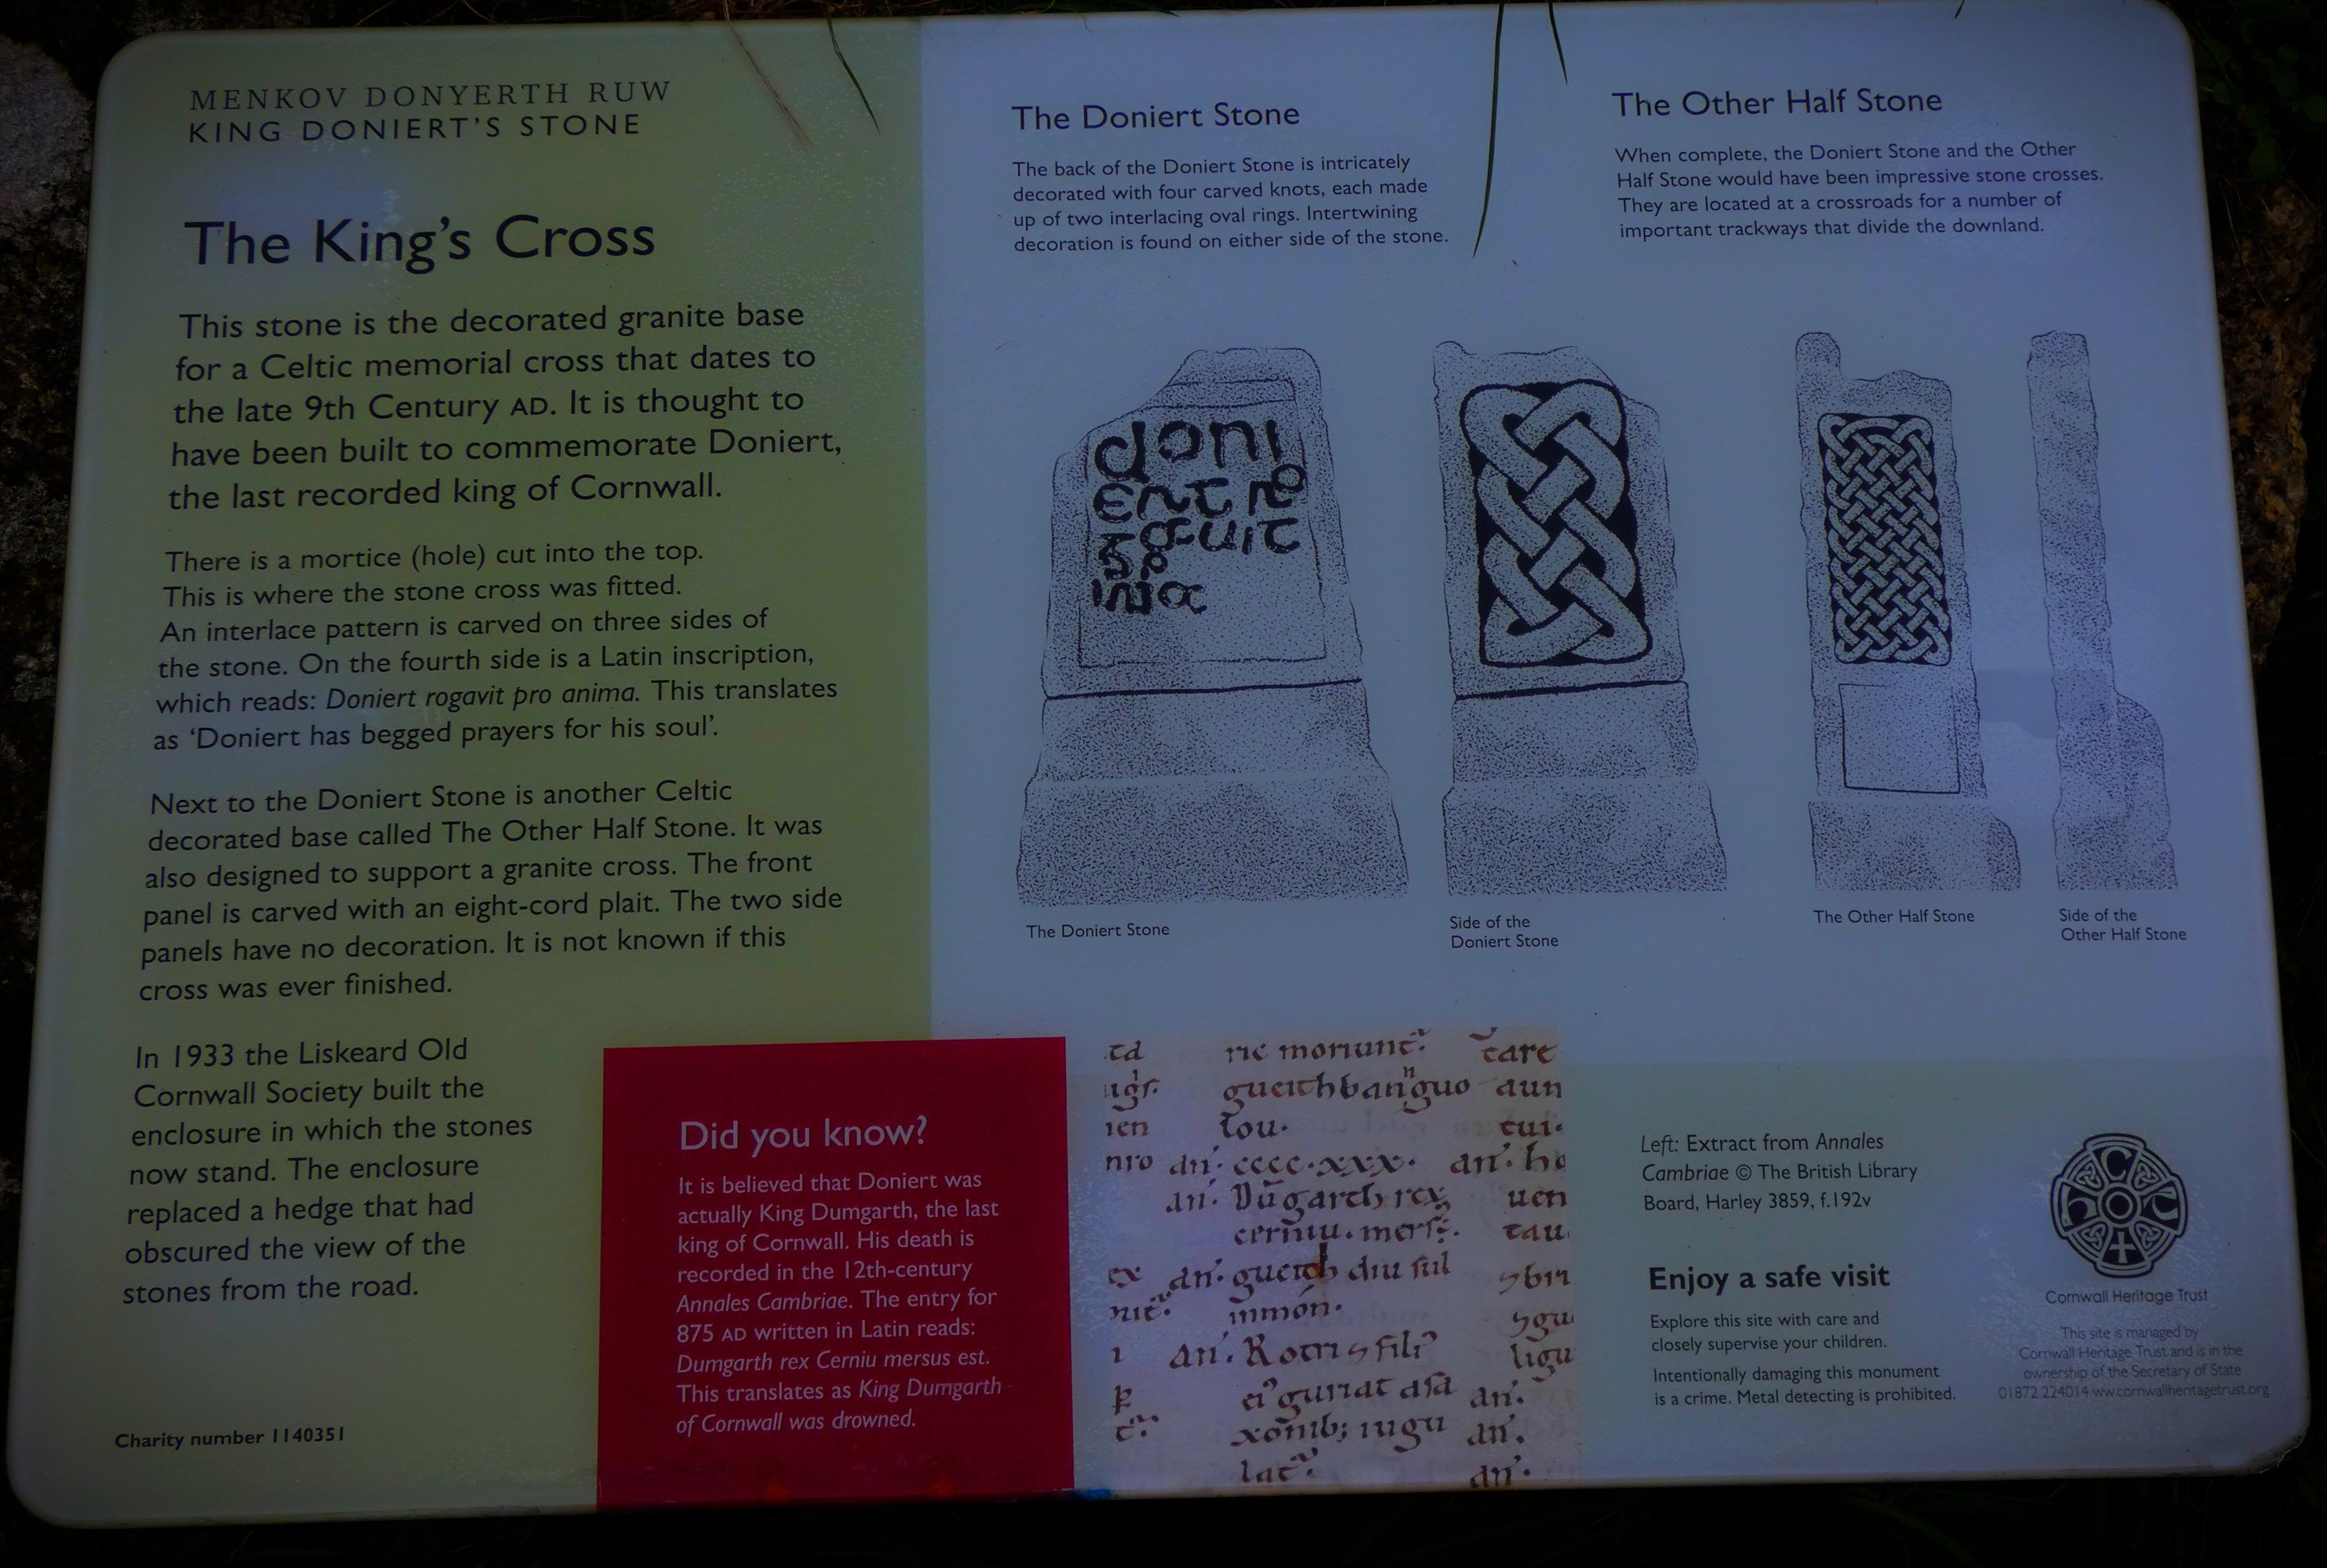 MENKOV DONYERTH RUW
KING DONIERT'S STONE
The King's Cross
This stone is the decorated granite base
for a Celtic memorial cross that dates to
the late 9th Century AD. It is thought to
have been built to commemorate Doniert,
the last recorded king of Cornwall.
There is a mortice (hole) cut into the top.
This is where the stone cross was fitted.
An interlace pattern is carved on three sides of
the stone. On the fourth side is a Latin inscription,
which reads: Doniert rogavit pro anima. This translates
as 'Doniert has begged prayers for his soul'.
Next to the Doniert Stone is another Celtic
decorated base called The Other Half Stone. It was
also designed to support a granite cross. The front
panel is carved with an eight-cord plait. The two side
panels have no decoration. It is not known if this
cross was ever finished.
In 1933 the Liskeard Old
Cornwall Society built the
enclosure in which the stones
now stand. The enclosure
replaced a hedge that had
obscured the view of the
stones from the road.
Charity number 1140351
Did you know?
It is believed that Doniert was
actually King Dumgarth, the last
king of Cornwall. His death is
recorded in the 12th-century
Annales Cambriae. The entry for
875 AD written in Latin reads:
Dumgarth rex Cerniu mersus est.
This translates as King Dumgarth
of Cornwall was drowned.
The Doniert Stone
The back of the Doniert Stone is intricately
decorated with four carved knots, each made
up of two interlacing oval rings. Intertwining
decoration is found on either side of the stone.
The Other Half Stone
When complete, the Doniert Stone and the Other
Half Stone would have been impressive stone crosses.
They are located at a crossroads for a number of
important trackways that divide the downland.
doni
The Doniert Stone
Side of the
Doniert Stone
The Other Half Stone
Side of the
Other Half Stone
Left: Extract from Annales
Cambriae © The British Library
Board, Harley 3859, f.192v
Enjoy a safe visit
Explore this site with care and
closely supervise your children.
Intentionally damaging this monument
is a crime. Metal detecting is prohibited.
Cornwall Heritage Trust
This site is managed by
Cornwall Heritage Trust and is in the
ownership of the Secretary of State
01872 224014 ww.cornwallheritagetrust.org